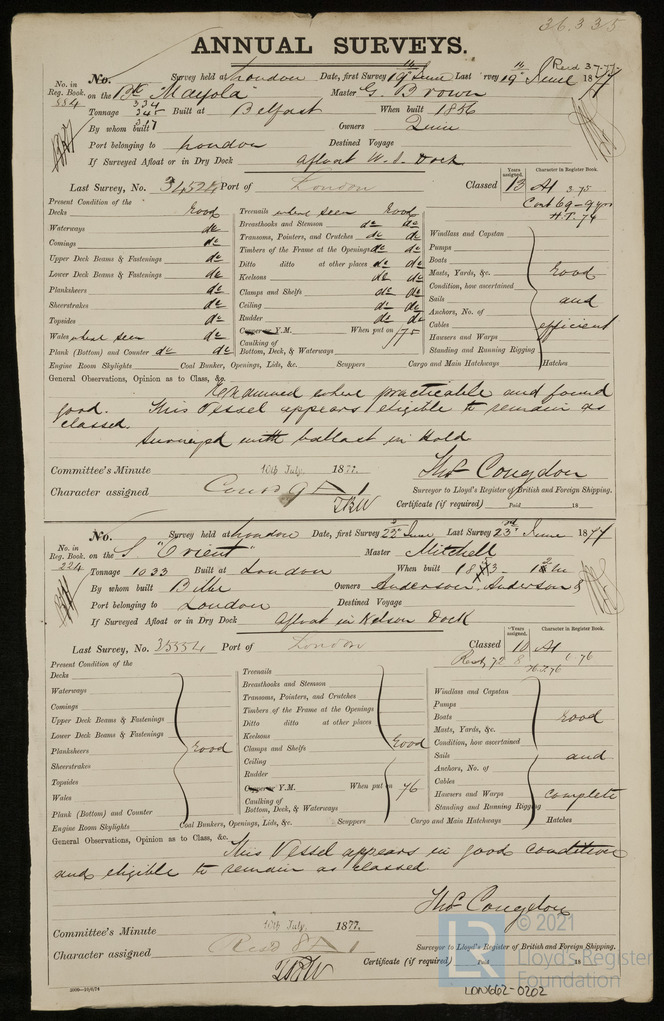 36335
ANNUAL SURVEYS.
No. Survey held at London Date, first Survey 19th June Last Survey 19th June 1877 Recd 3-7-77
No. in Reg. Book. 334 on the Bk "Mayola" Master G. Brown
Tonnage 334 345 317 Built at Belfast When built 1856
By whom built Owners
Port belonging to London Destined Voyage
If Surveyed Afloat or in Dry Dock Afloat W. I. Dock
Last Survey, No. 34524 Port of London Classed Years assigned. 13 Character in Register Book. A1 3.75
Cont 69-9yrs
H.T. 74
Present Condition of the
Decks Good Treenails where seen Good
Waterways do Breasthooks and Stemson do do Windlass and Capstan
Comings do Transoms, Pointers, and Crutches do do Pumps
Upper Deck Beams & Fastenings do Timbers of the Frame at the Openings do do Boats
Lower Deck Beams & Fastenings do Ditto ditto at other places do do Masts, Yards, &c. Good
Planksheers do Keelsons do do Condition, how ascertained
Sheerstrakes do Clamps and Shelfs do do Sails and
Topsides do Ceiling do do Anchors, No. of
Wales where seen do Rudder do do Cables efficient
Plank (Bottom) and Counter do do Copper or Y.M. When put on /75 Hawsers and Warps
Caulking of Bottom, Deck, & Waterways Standing and Running Rigging
Engine Room Skylights Coal Bunker, Openings, Lids, &c. Scuppers Cargo and Main Hatchways Hatches
General Observations, Opinion as to Class, &c. Examined where practicable and found
good. This Vessel appears eligible to remain as
classed.
Surveyed with ballast in Hold
Committee's Minute 10th July, 1877. Thos Congdon
Character assigned Cont 9 A1 Surveyor to Lloyd's Register of British and Foreign Shipping.
TBW Certificate (if required) Paid 18
No. Survey held at London Date, first Survey 23rd June Last Survey 23rd June 1877
No. in Reg. Book. 224 on the S "Orient" Master Mitchell
Tonnage 1033 Built at London When built 1853
By whom built Owners Anderson, Anderson &
Port belonging to London Destined Voyage
If Surveyed Afloat or in Dry Dock Afloat in Nelson Dock
Last Survey, No. 35554 Port of London Classed Years assigned. 10 Character in Register Book. A1 6.76
Rest 72 8
Present Condition of the
Decks Treenails
Waterways Breasthooks and Stemson Windlass and Capstan
Comings Transoms, Pointers, and Crutches Pumps
Upper Deck Beams & Fastenings Timbers of the Frame at the Openings Boats Good
Lower Deck Beams & Fastenings Ditto ditto at other places Masts, Yards, &c.
Planksheers Good Keelsons Good Condition, how ascertained
Sheerstrakes Clamps and Shelfs Sails and
Topsides Ceiling Anchors, No. of
Wales Rudder Cables
Plank (Bottom) and Counter Copper or Y.M. When put on 76 Hawsers and Warps complete
Caulking of Bottom, Deck, & Waterways Standing and Running Rigging
Engine Room Skylights Coal Bunkers, Openings, Lids, &c. Scuppers Cargo and Main Hatchways Hatches
General Observations, Opinion as to Class, &c. This Vessel appears in good condition
and eligible to remain as classed
Thos Congdon
Committee's Minute 10th July, 1877.
Character assigned Rest 8 A1 Surveyor to Lloyd's Register of British and Foreign Shipping.
TBW Certificate (if required) Paid 18
LR © 2021 Lloyd's Register Foundation
LON662-0202